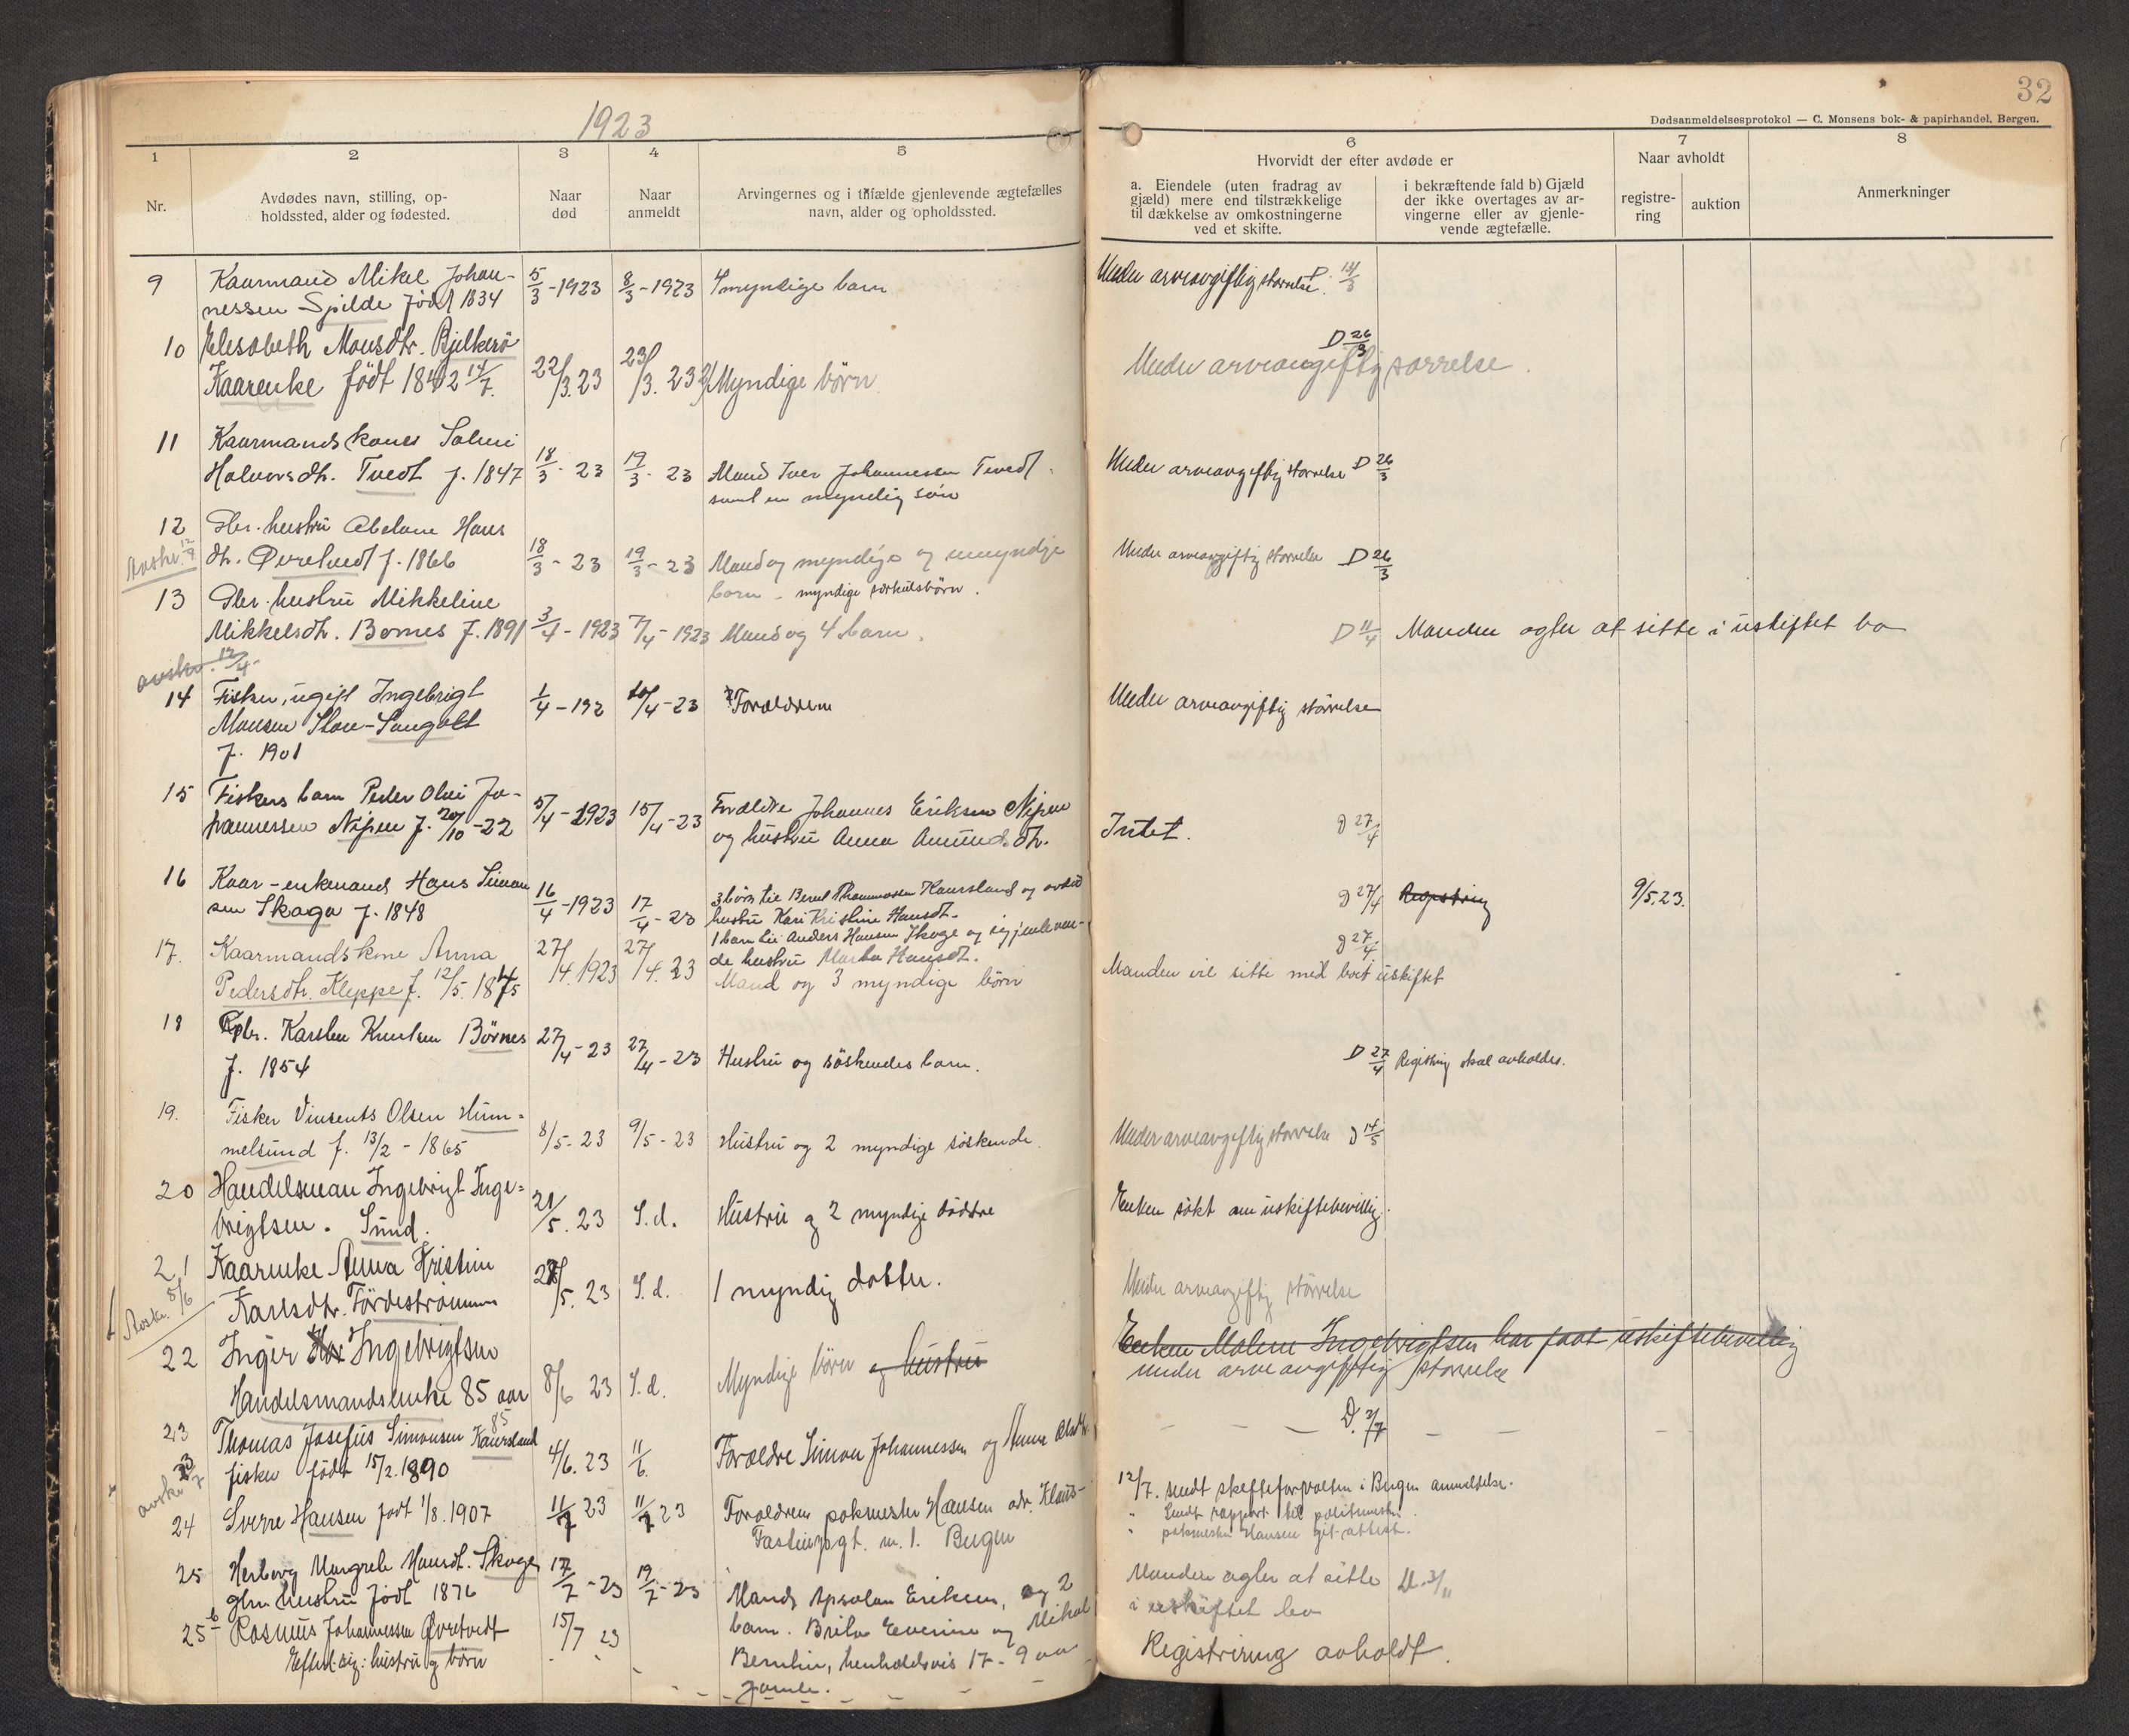 1923
32
Dødsanmeldelsesprotokol — C. Monsens bok- & papirhandel, Bergen.
1
2
3
4
5
6
7
8
Nr.
Avdødes navn, stilling, op-
holdssted, alder og fødested.
Naar
død
Naar
anmeldt
Arvingernes og i tilfælde gjenlevende ægtefælles
navn, alder og opholdssted.
Hvorvidt der efter avdøde er
a. Eiendele (uten fradrag av
gjæld) mere end tilstrækkelige
til dækkelse av omkostningerne
ved et skifte.
i bekræftende fald b) Gjæld
der ikke overtages av ar-
vingerne eller av gjenle-
vende ægtefælle.
Naar avholdt
registre-
ring
auktion
Anmerkninger
9 Kaarmand Mikel Johan-
nessen Spilde født 1834
5/3-1923 8/3-1923 4 myndige barn
Under arveavgiftig størrelse D. 12/3
10 Elesabeth Monsdtr. Bjelkerö
Kaarenke født 1842 14/7.
22/3.23 23/3.23 Myndige börn
D 26/3
Under arveavgiftig størrelse.
11 Kaarmandskones
Halvorsdtr. Tvedt f. 1847
18/3-23 19/3-23 Mand Iver Johannessen Tvedt
samt en myndig søn
Under arveavgiftig størrelse D 26/3
12 Gbr. hustru Abelone Hans
dtr. Øvretvedt f. 1866
Avskr. 12/4
18/3-23 19/3-23 Mand og myndige og umyndige
barn - myndige særkulsbörn.
Under arveavgiftig størrelse D 26/3
13 Gbr. hustru Mikkeline
Mikkelsdtr. Bornes f. 1891
3/4-1923 7/4-1923 Mand og 4 barn.
D 11/4 Manden agter at sitte i uskiftet bo
avskr. 12/4
14 Fisker, ugift Ingebrigt
Monsen
f. 1901
1/4-192 10/4-23 Forældrene
Under arveavgiftig størrelse
15 Fiskers barn Peder Olai Jo-
hannessen Nipen f. 20/10-22
5/4-1923 15/4-23 Forældre Johannes Eriksen Nipen
og hustru Anna Amunds dtr.
Intet. D 27/4
16 Kaar-enkemand Hans Simon
sen Skaga f. 1848
16/4-1923 17/4-23 3 børn til Bernt Thommasen Kaursland og avdød
hustru Kari Kristine Hansdtr.
1 barn til Anders Hansen Skoge og gjenleven-
de hustru Marta Hansdt.
D 27/4 Registring 9/5.23.
17. Kaarmandskone Anna
Pedersdtr. Kleppe f. 12/5.1875
27/4.1923 27/4.23 Mand og 3 myndige börn
D 27/4
Manden vil sitte med boet uskiftet
18 Gbr. Karsten Knutsen Börnes
f. 1854
27/4-23 27/4-23 Hustru og söskendes barn.
D 27/4 Registring skal avholdes.
19. Fisker Vinsents Olsen Hum-
melsund f. 13/2-1865
8/5-23 9/5-23 Hustru og 2 myndige söskende.
Under arveavgiftig størrelse D 14/5
20 Handelsman Ingebrigt Inge-
brigtsen. Sund.
21/5.23 S.d. Hustru og 2 myndige döttre
Enken sökt om uskiftebevillig.
21 Kaarenke Anna Kristine
Karlsdtr. Fördeströmmen
Avskr. 8/6
28/5.23 S.d. 1 myndig datter.
Under arveavgiftig størrelse
22 Inger Ingebrigtsen
Handelsmandsenke 85 aar
85
8/6 23 S.d. Myndige börn og hustru
Enken Malene Ingebrigtsen har faat uskiftebevillig
under arveavgiftig størrelse
23 Thomas Josefus Simonsen Kaursland
fisker født 15/2.1890
4/6.23 11/6. Forældre Simon Johannessen og Anna Olsdtr.
D. 2/7
24 Sverre Hansen født 1/8.1907
11/7 23 11/7 23 Forældrene pakmester Hansen adr. Klaus-
m. 1. Bergen
12/7. sendt skifteforvalten i Bergen anmeldelse.
" Sendt rapport til politimester.
" pakmester Hansen git attest.
25 Herborg Margrete Hansdt. Skoge
gbr. hustru født 1876
17/7-23 19/7-23 Mand Apsalon Eriksen, og 2
barn. Brita Everine og Mikal
Berntin, henholdsvis 17-9 aar
gamle.
Manden agter at sitte
i uskiftet bo
25 b Rasmus Johannessen Øvretvedt
Efterl. sig: hustru og börn
15/7 23
Registrering avholdt.